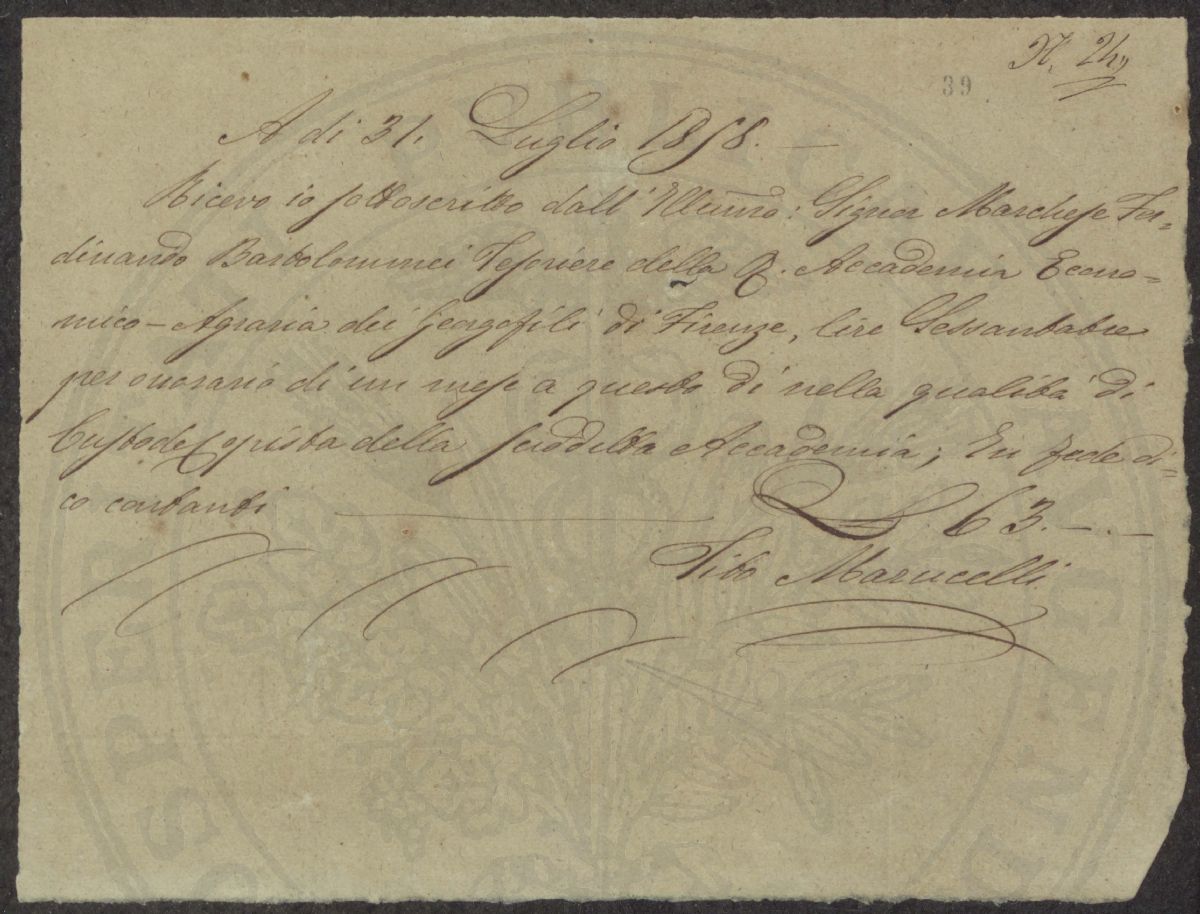 N. 24
39
A di 31. Luglio 1858. —
Ricevo io sottoscritto dall' Illmo: Signor Marchese Fer=
dinando Bartolommei Tesoriere della R. Accademia Econo=
mico-Agraria dei Georgofili di Firenze, lire Sessantatre
per onorario di un mese a questo dì nella qualità di
Custode Copista della suddetta Accademia; En fede di=
co contanti ——— L. 63. — . —
Tito Marucelli